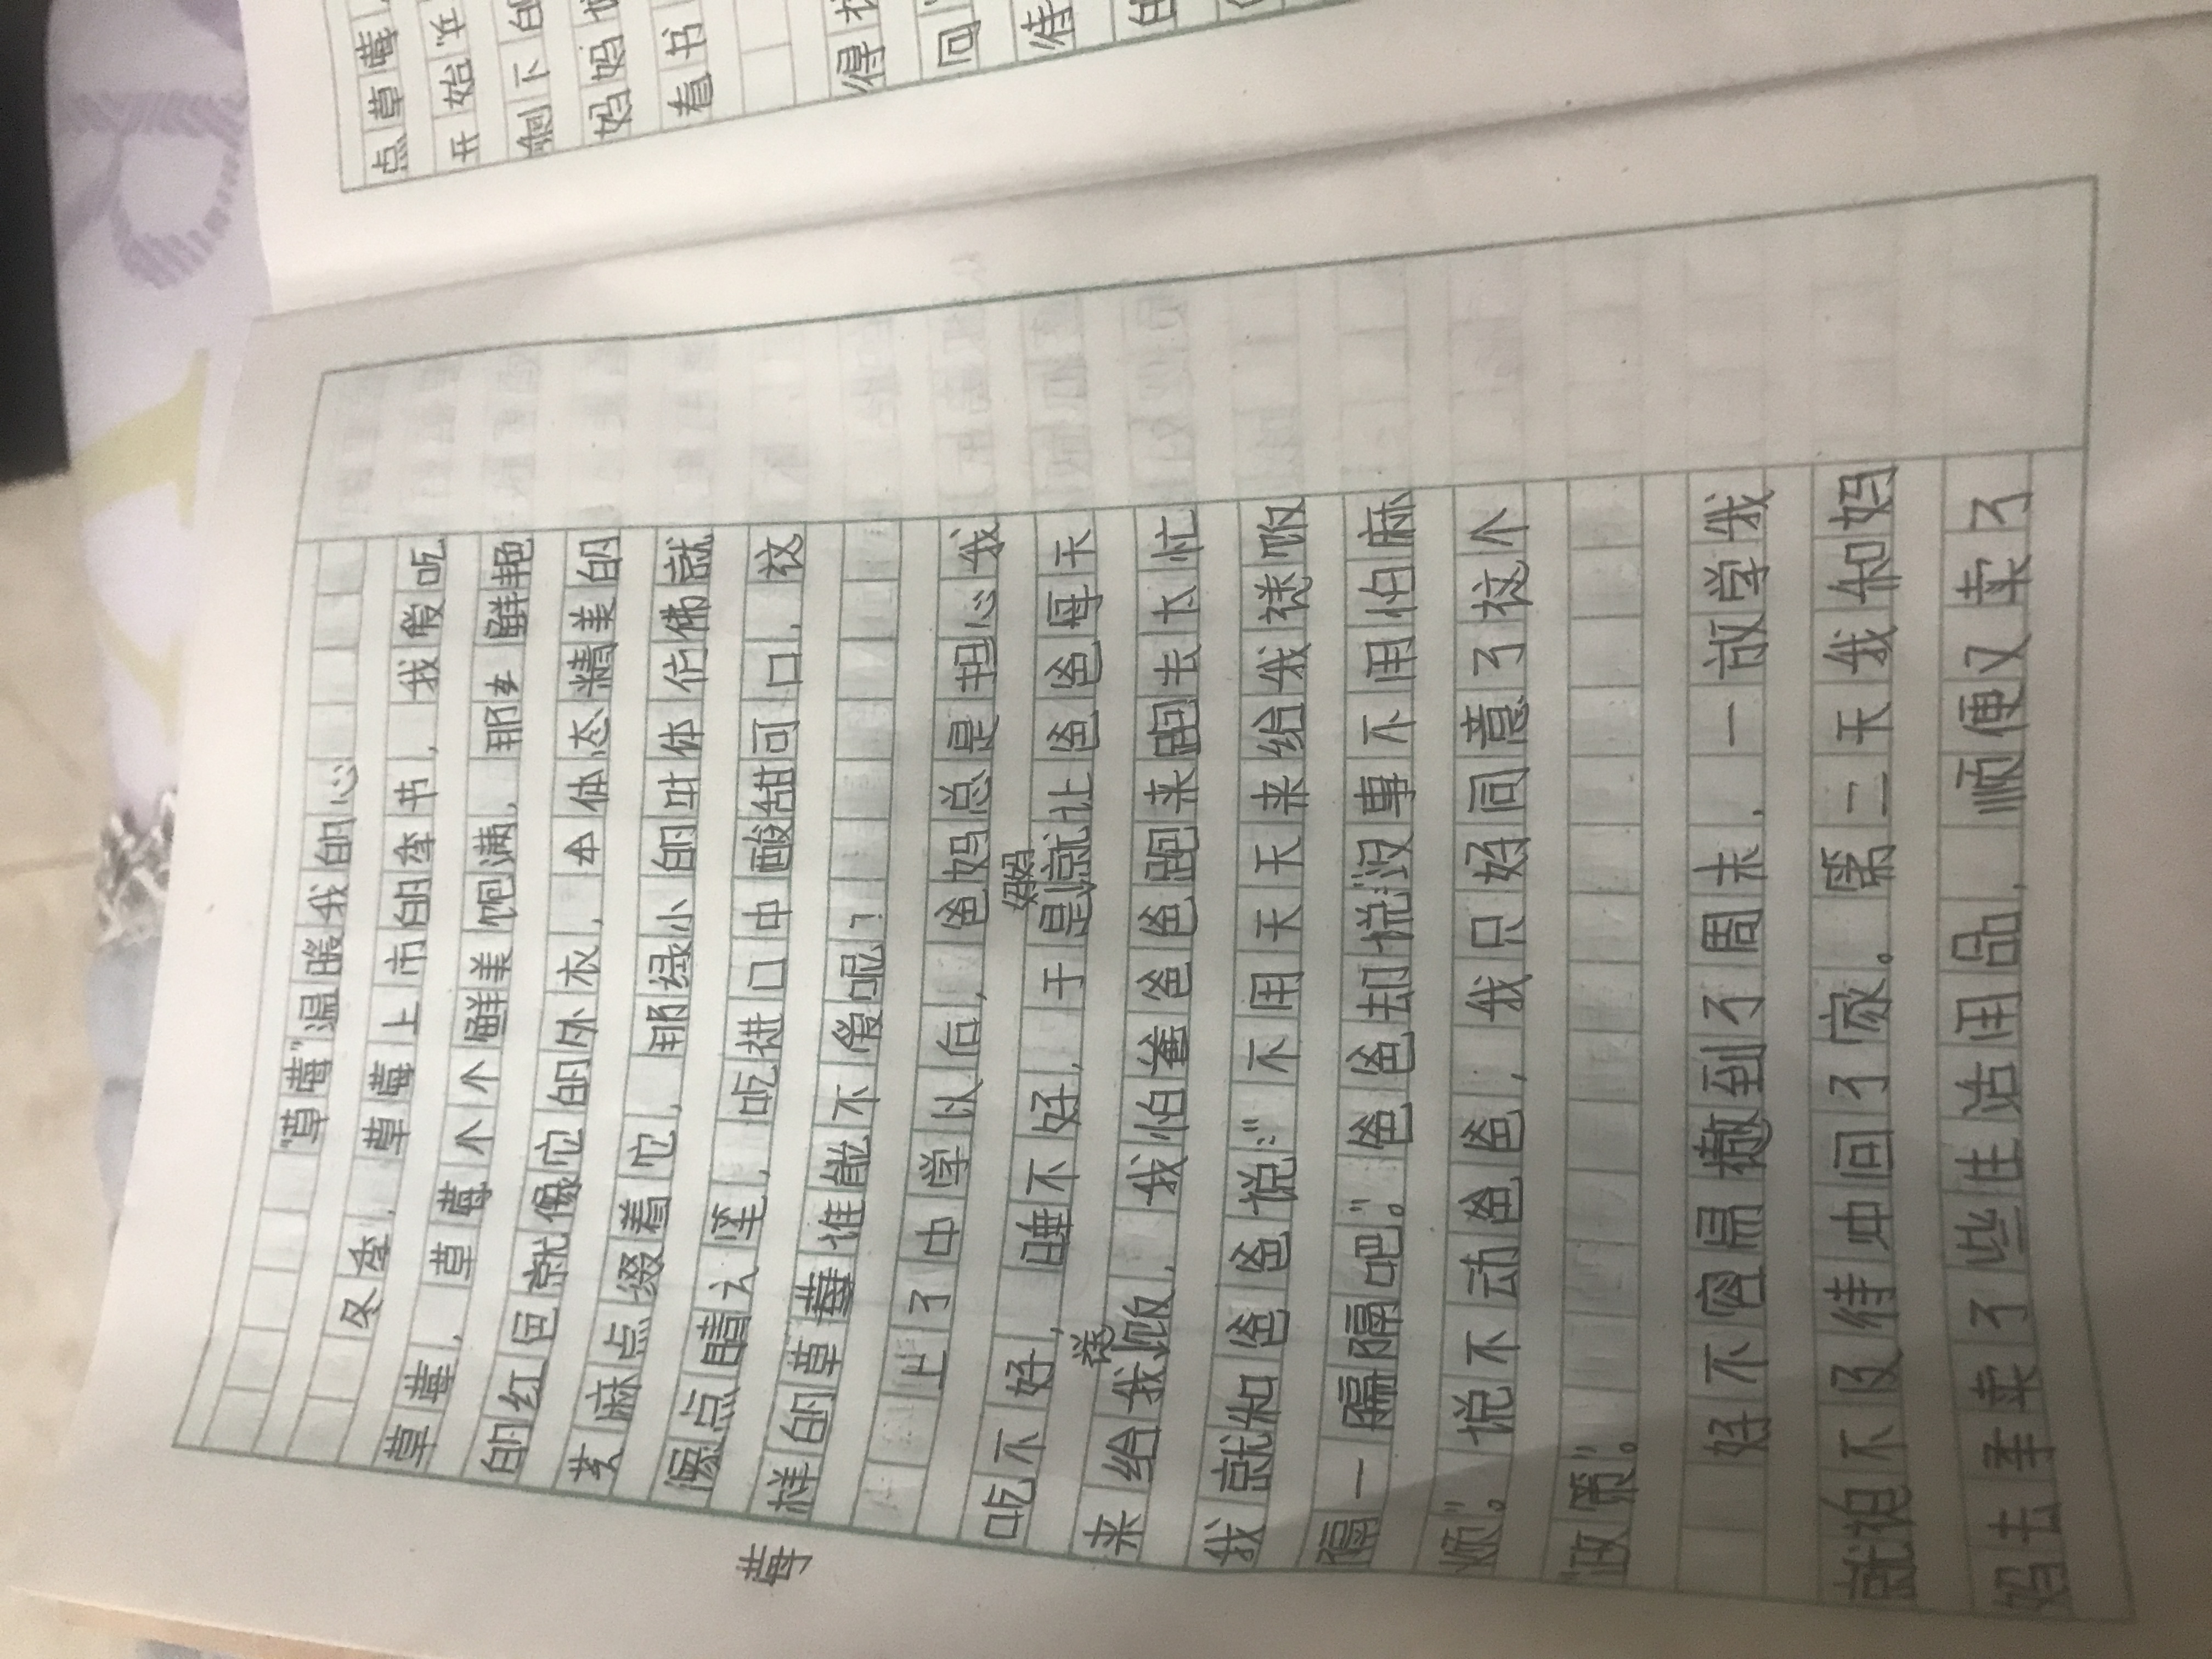 “草莓”温暖我的心
冬季，草莓上市的季节，我爱吃
草莓，草莓个个鲜美饱满，那鲜艳
的红色就像它的外衣，体态精美的
芝麻点缀着它，那绿小的叶体仿佛就
像点睛之笔，吃进口中酸甜可口，这
样的草莓谁能不爱呢？
莓
上了中学以后，爸妈总是担心我
吃不好，睡不好，于是妈妈就让爸爸每天
来给我送饭，我怕爸爸跑来跑去太忙
我就和爸爸说：“不用天天来给我送饭
隔一隔吧”。爸爸却说没事不用怕麻
烦”。说不动爸爸，我只好同意了这个
“政策”。
好不容易熬到了周末，一放学我
就迫不及待冲回了家。第二天我和妈
妈去车卖了些生活用品，顺便又卖了
点草莓
开始
剩下的
妈妈
看书
得
回
待